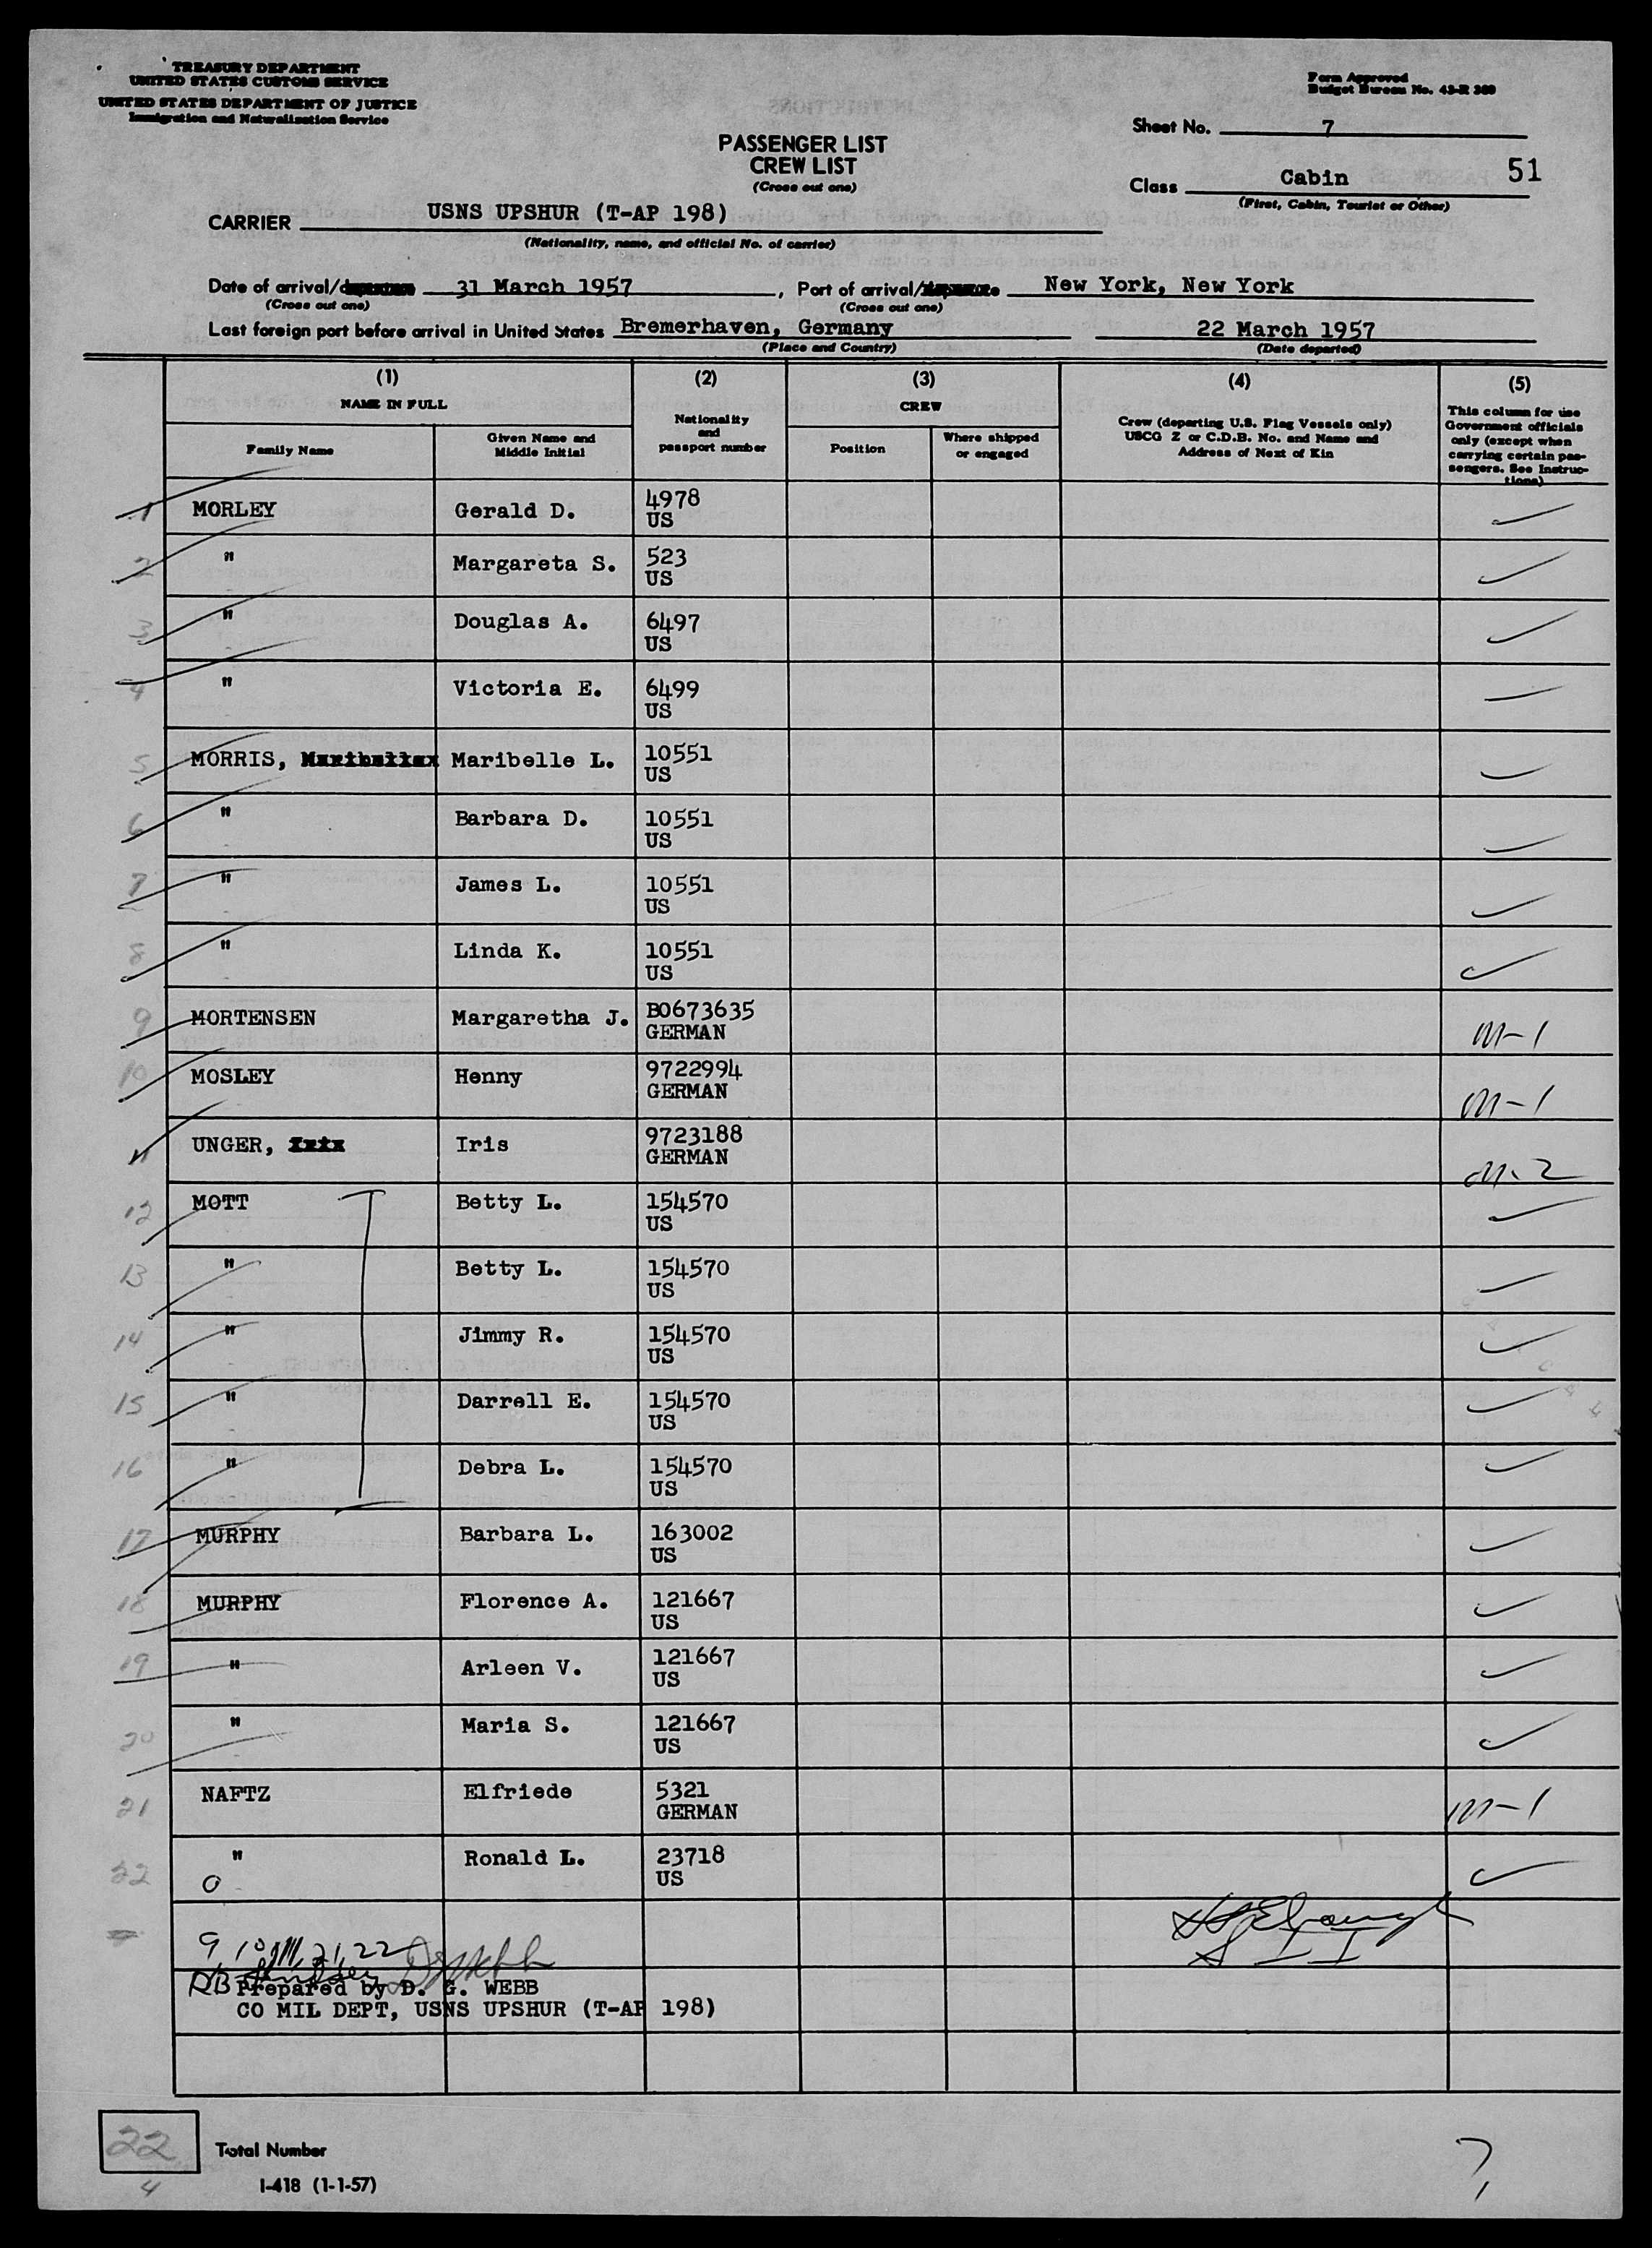 TREASURY DEPARTMENT
UNITED STATES CUSTOMS SERVICE
UNITED STATES DEPARTMENT OF JUSTICE
Immigration and Naturalization Service
Form Approved
Budget Bureau No. 43-R 389
Sheet No. 7
PASSENGER LIST
CREW LIST
(Cross out one)
Class Cabin 51
(First, Cabin, Tourist or Other)
CARRIER USNS UPSHUR (T-AP 198)
(Nationality, name, and official No. of carrier)
Date of arrival/departure 31 March 1957, Port of arrival/departure New York, New York
(Cross out one) (Cross out one)
Last foreign port before arrival in United States Bremerhaven, Germany 22 March 1957
(Place and Country) (Date departed)
(1) (2) (3) (4) (5)
NAME IN FULL
Family Name
Given Name and Middle Initial
Nationality and passport number
CREW
Position
Where shipped or engaged
Crew (departing U.S. Flag Vessels only)
USCG Z or C.D.B. No. and Name and
Address of Next of Kin
This column for use
Government officials
only (except when
carrying certain pas-
sengers. See Instruc-
tions)
1 MORLEY Gerald D. 4978 US
2 " Margareta S. 523 US
3 " Douglas A. 6497 US
4 " Victoria E. 6499 US
5 MORRIS, Maribelle L. 10551 US
6 " Barbara D. 10551 US
7 " James L. 10551 US
8 " Linda K. 10551 US
9 MORTENSEN Margaretha J. B0673635 GERMAN M-1
10 MOSLEY Henny 9722994 GERMAN M-1
11 UNGER, Iris 9723188 GERMAN M-2
12 MOTT Betty L. 154570 US
13 " Betty L. 154570 US
14 " Jimmy R. 154570 US
15 " Darrell E. 154570 US
16 " Debra L. 154570 US
17 MURPHY Barbara L. 163002 US
18 MURPHY Florence A. 121667 US
19 " Arleen V. 121667 US
20 " Maria S. 121667 US
21 NAFTZ Elfriede 5321 GERMAN M-1
22 " Ronald L. 23718 US
0
9 10, 11, 21, 22
Prepared by D. G. WEBB
CO MIL DEPT, USNS UPSHUR (T-AP 198)
22 Total Number
4
I-418 (1-1-57)